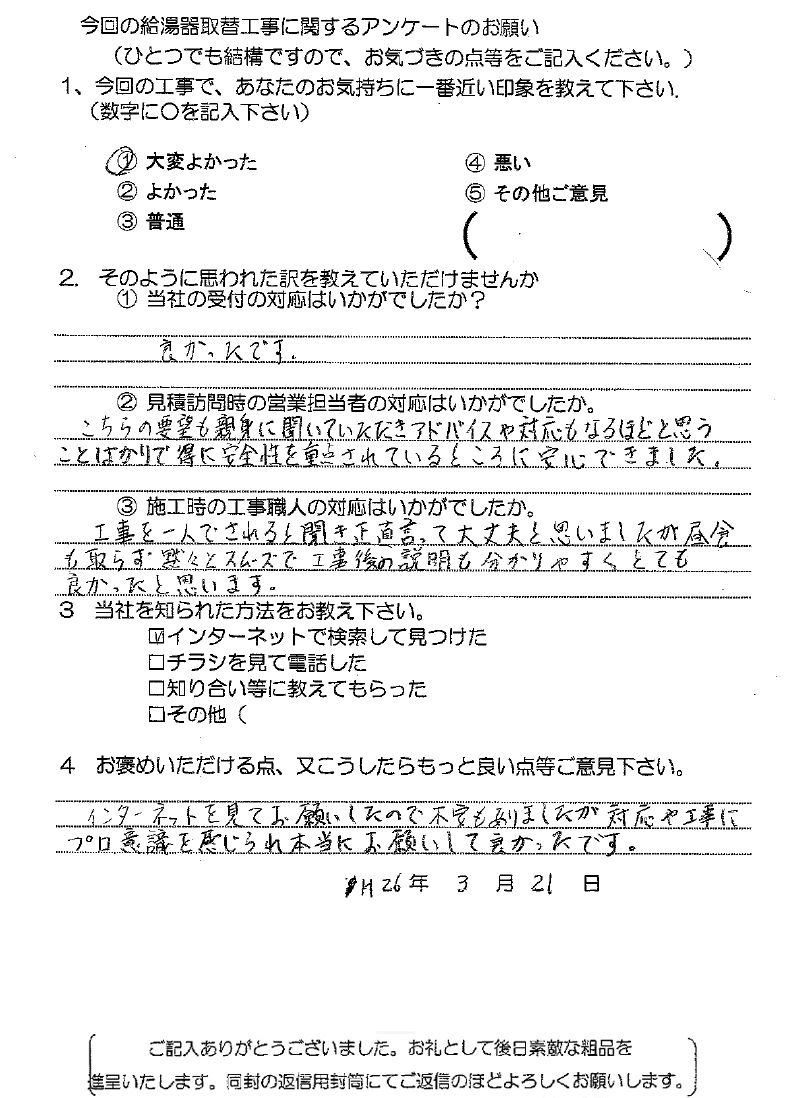 今回の給湯器取替工事に関するアンケートのお願い
(ひとつでも結構ですので、お気づきの点等をご記入ください。)
1、今回の工事で、あなたのお気持ちに一番近い印象を教えて下さい.
(数字に○を記入下さい)
① 大変よかった
② よかった
③ 普通
④ 悪い
⑤ その他ご意見
( )
2. そのように思われた訳を教えていただけませんか
① 当社の受付の対応はいかがでしたか?
良かったです.
② 見積訪問時の営業担当者の対応はいかがでしたか。
こちらの要望も親身に聞いていただきアドバイスや対応もなるほどと思う
ことばかりで得に安全性を重点されているところに安心できました。
③ 施工時の工事職人の対応はいかがでしたか。
工事を一人でされると聞き正直言って大丈夫と思いましたが昼食
も取らず黙々とスムーズで工事後の説明も分かりやすくとても
良かったと思います。
3 当社を知られた方法をお教え下さい。
☑インターネットで検索して見つけた
□チラシを見て電話した
□知り合い等に教えてもらった
□その他(
4 お褒めいただける点、又こうしたらもっと良い点等ご意見下さい。
インターネットを見てお願いしたので不安もありましたが対応や工事に
プロ意識を感じられ本当にお願いして良かったです。
H26年 3 月 21 日
ご記入ありがとうございました。お礼として後日素敵な粗品を
進呈いたします。同封の返信用封筒にてご返信のほどよろしくお願いします。